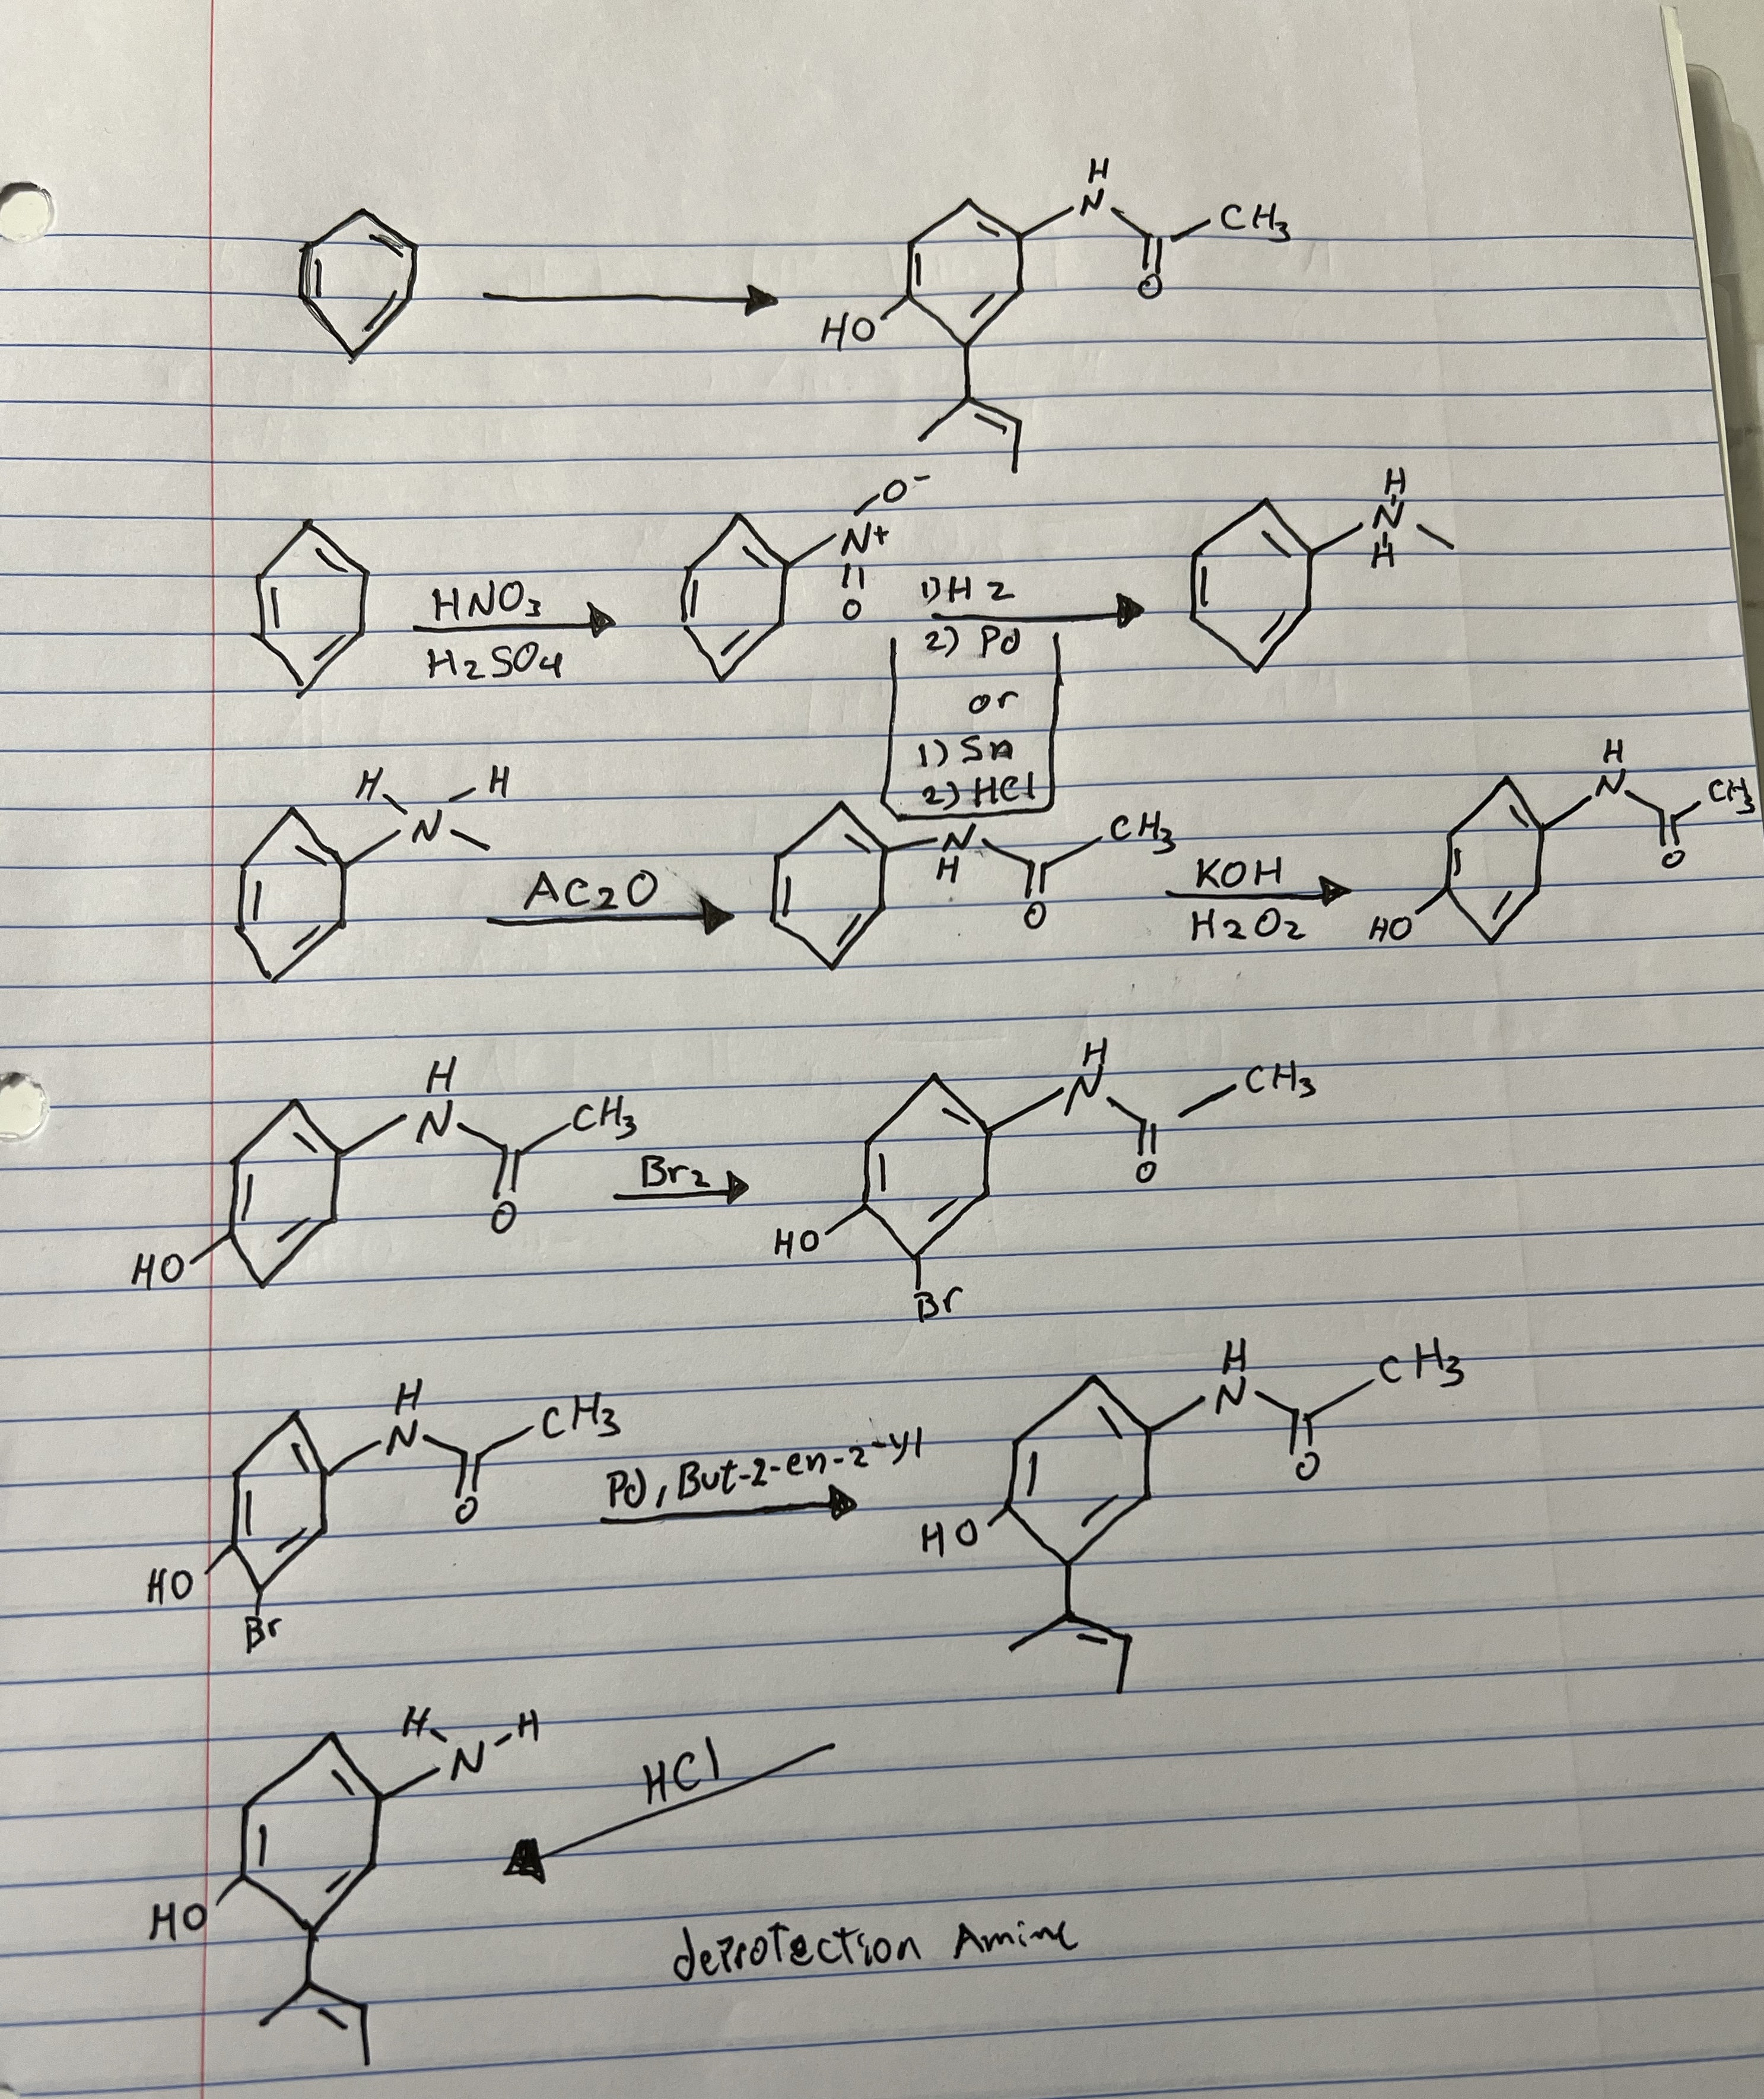 H
N
CH3
O
HO
O-
N+
O
HNO3
H2SO4
1) H2
2) Pd
or
1) Sn
2) HCl
H
N
H
H
H
N
AC2O
N
H
CH3
O
KOH
H2O2
H
N
CH3
O
HO
H
N
CH3
O
HO
Br2
H
N
CH3
O
HO
Br
H
N
CH3
O
HO
Br
Pd, But-2-en-2-yl
H
N
CH3
O
HO
H
N
H
HO
HCl
deprotection Amine